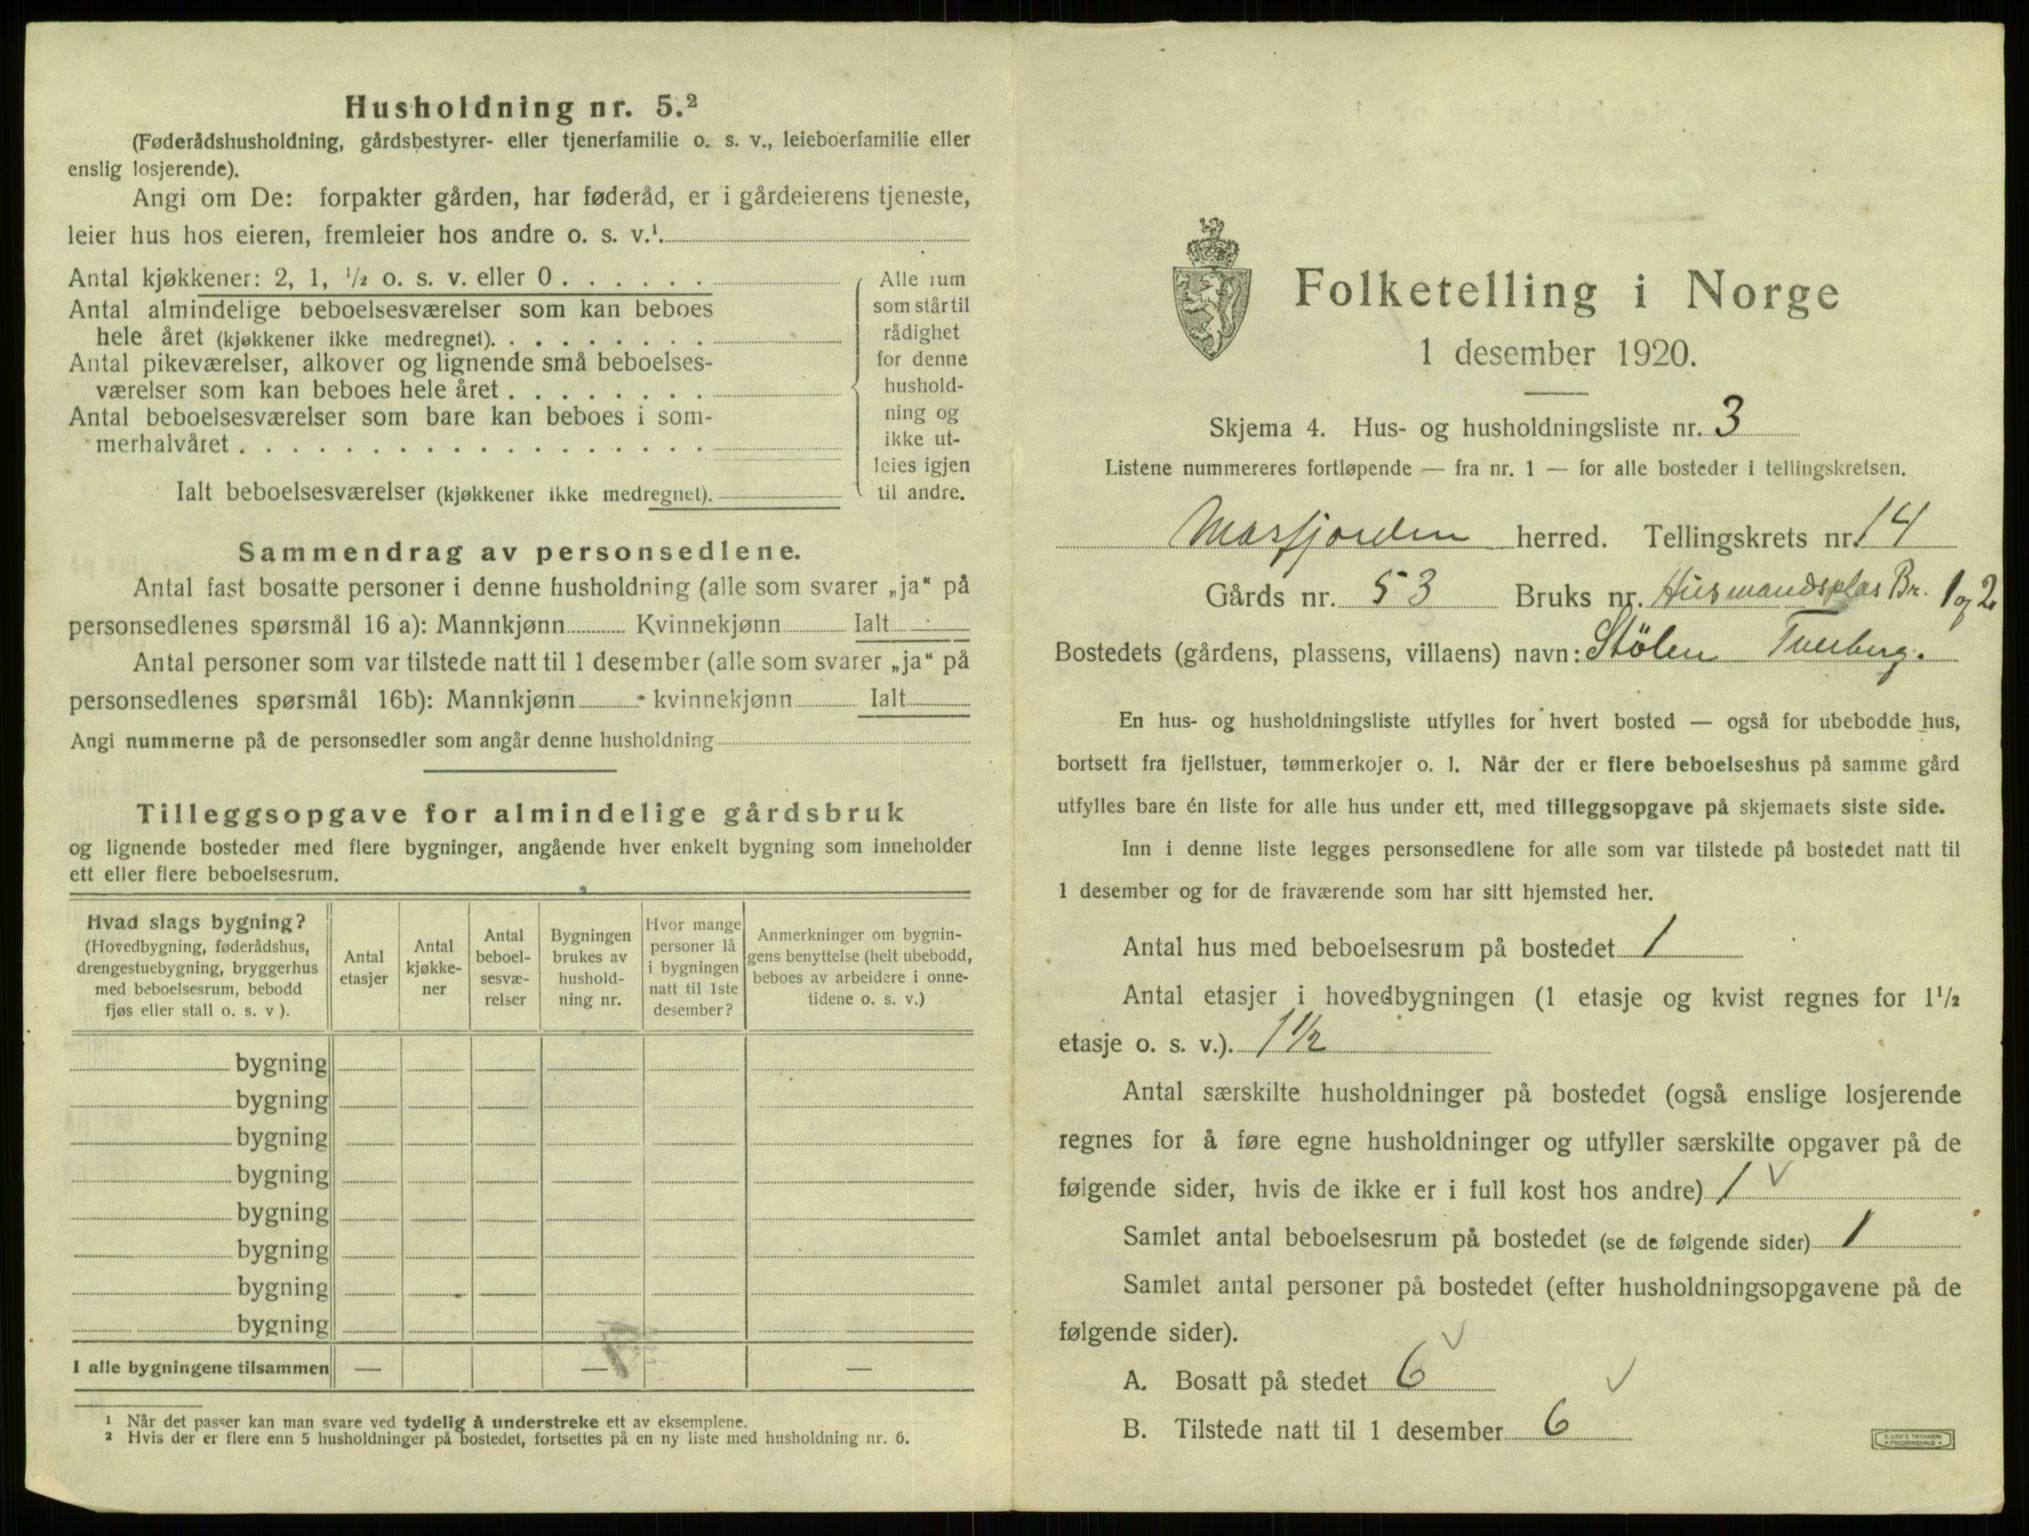 Husholdning nr. 5.²
(Føderådshusholdning, gårdsbestyrer- eller tjenerfamilie o. s. v., leieboerfamilie eller
enslig losjerende).
Angi om De: forpakter gården, har føderåd, er i gårdeierens tjeneste,
leier hus hos eieren, fremleier hos andre o. s. v.¹.
Antal kjøkkener: 2, 1, ½ o. s. v. eller 0 . . . . . .
Antal almindelige beboelsesværelser som kan beboes
hele året (kjøkkener ikke medregnet). . . . . . . . .
Antal pikeværelser, alkover og lignende små beboelses-
værelser som kan beboes hele året . . . . . . . .
Antal beboelsesværelser som bare kan beboes i som-
merhalvåret . . . . . . . . . . . . . . . . . .
Ialt beboelsesværelser (kjøkkener ikke medregnet).
Alle rum
som står til
rådighet
for denne
hushold-
ning og
ikke ut-
leies igjen
til andre.
Sammendrag av personsedlene.
Antal fast bosatte personer i denne husholdning (alle som svarer „ja“ på
personsedlenes spørsmål 16 a): Mannkjønn Kvinnekjønn Ialt
Antal personer som var tilstede natt til 1 desember (alle som svarer „ja“ på
personsedlenes spørsmål 16b): Mannkjønn kvinnekjønn Ialt
Angi nummerne på de personsedler som angår denne husholdning
Tilleggsopgave for almindelige gårdsbruk
og lignende bosteder med flere bygninger, angående hver enkelt bygning som inneholder
ett eller flere beboelsesrum.
Hvad slags bygning?
(Hovedbygning, føderådshus,
drengestuebygning, bryggerhus
med beboelsesrum, bebodd
fjøs eller stall o. s. v ).
Antal
etasjer
Antal
kjøkke-
ner
Antal
beboel-
sesvæ-
relser
Bygningen
brukes av
hushold-
ning nr.
Hvor mange
personer lå
i bygningen
natt til 1ste
desember?
Anmerkninger om bygnin-
gens benyttelse (helt ubebodd,
beboes av arbeidere i onne-
tidene o. s. v.)
bygning
bygning
bygning
bygning
bygning
bygning
bygning
bygning
I alle bygningene tilsammen — — —
¹ Når det passer kan man svare ved tydelig å understreke ett av eksemplene.
² Hvis der er flere enn 5 husholdninger på bostedet, fortsettes på en ny liste med husholdning nr. 6.
Folketelling i Norge
1 desember 1920.
Skjema 4. Hus- og husholdningsliste nr. 3
Listene nummereres fortløpende — fra nr. 1 — for alle bosteder i tellingskretsen.
Masfjorden herred. Tellingskrets nr. 14
Gårds nr. 53 Bruks nr. Husmandsplas Br. 1 og 2
Bostedets (gårdens, plassens, villaens) navn: Stölen Tverberg.
En hus- og husholdningsliste utfylles for hvert bosted — også for ubebodde hus,
bortsett fra fjellstuer, tømmerkojer o. l. Når der er flere beboelseshus på samme gård
utfylles bare én liste for alle hus under ett, med tilleggsopgave på skjemaets siste side.
Inn i denne liste legges personsedlene for alle som var tilstede på bostedet natt til
1 desember og for de fraværende som har sitt hjemsted her.
Antal hus med beboelsesrum på bostedet 1
Antal etasjer i hovedbygningen (1 etasje og kvist regnes for 1½
etasje o. s. v.). 1½
Antal særskilte husholdninger på bostedet (også enslige losjerende
regnes for å føre egne husholdninger og utfyller særskilte opgaver på de
følgende sider, hvis de ikke er i full kost hos andre) 1
Samlet antal beboelsesrum på bostedet (se de følgende sider) 1
Samlet antal personer på bostedet (efter husholdningsopgavene på de
følgende sider).
A. Bosatt på stedet 6
B. Tilstede natt til 1 desember 6